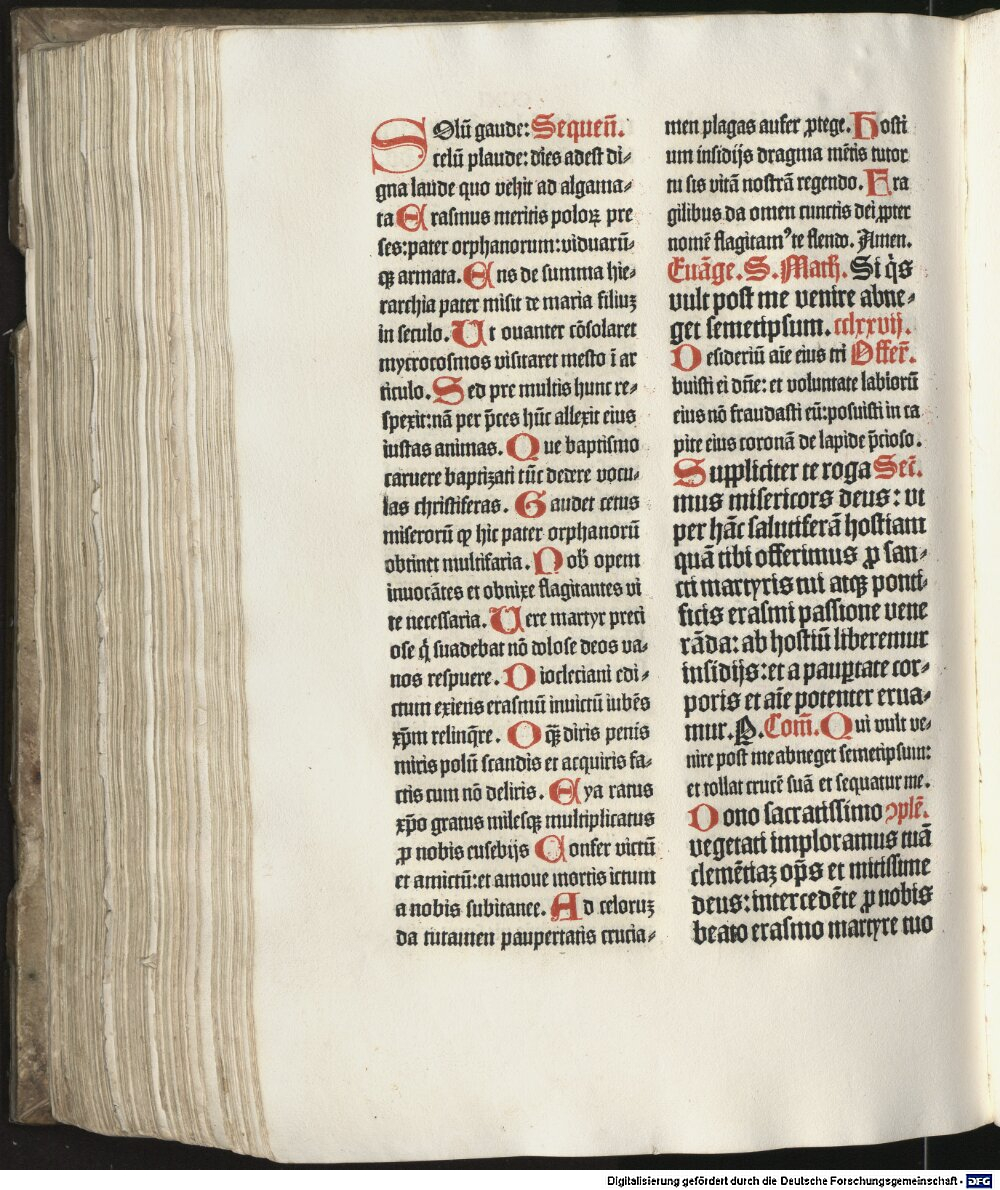 Solū gaude: Sequen̄.
celū plaude: dies adest di⸗
gna laude quo vehit ad algama⸗
ta Erasmus meritis poloꝝ pre
ses: pater orphanorum: viduarū⸗
qꝫ armata. Ens de summa hie⸗
rarchia pater misit de maria filiuꝫ
in seculo. Ut ouanter cōsolaret
mycrocosmos visitaret mesto ī ar
ticulo. Sed pre multis hunc re⸗
spexit: nā per p̄ces hūc allexit eius
iustas animas. Que baptismo
caruere baptizati tūc dedere vocu⸗
las christiferas. Gaudet cetus
miserorū ꝙ hic pater orphanorū
obtinet multifaria. Nob̄ opem
inuocātes et obnixe flagitantes vi
te necessaria. Uere martyr preci
ose q̄ suadebat nō dolose deos va⸗
nos respuere. Diocletiani edi⸗
ctum exiens erasmū inuictū iubēs
xp̄m relinq̄re. O qꝫ̄ diris penis
miris polū scandis et acquiris fa⸗
ctis cum nō deliris. Eya ratus
xp̄o gratus milesqꝫ multiplicatus
ꝓ nobis eusebijs Confer victū
et amictū: et amoue mortis ictum
a nobis subitanee. Ad celoruꝫ
da tutamen paupertatis crucia⸗
men plagas aufer ꝓtege. Hosti
um insidijs dragma mētis tutor
tu sis vitā nostrā regendo. Fra
gilibus da omen cunctis dei ꝓpter
nomē flagitamꝰ te flendo. Amen.
Euāge. S. Math. Si q̇s
vult post me venire abne⸗
get semetipsum. cclxxvij.
Desideriū aīe eius tri Offer̄.
buisti ei dn̄e: et voluntate labiorū
eius nō fraudasti eū: posuisti in ca
pite eius coronā de lapide p̄cioso.
Suppliciter te roga Sec̄.
mus misericors deus: vt
per hāc salutiferā hostiam
quā tibi offerimus ꝓ san⸗
cti martyris tui atqꝫ ponti⸗
ficis erasmi passione vene
rāda: ab hostiū liberemur
insidijs: et a pauꝑtate cor⸗
poris et aīe potenter erua⸗
mur. P. Com̄. Qui vult ve⸗
nire post me abneget semetipsum:
et tollat crucē suā et sequatur me.
Dono sacratissimo ꝯplē.
vegetati imploramus tuā
clemētiaꝫ op̄s et mitissime
deus: intercedēte ꝓ nobis
beato erasmo martyre tuo
Digitalisierung gefördert durch die Deutsche Forschungsgemeinschaft - DFG